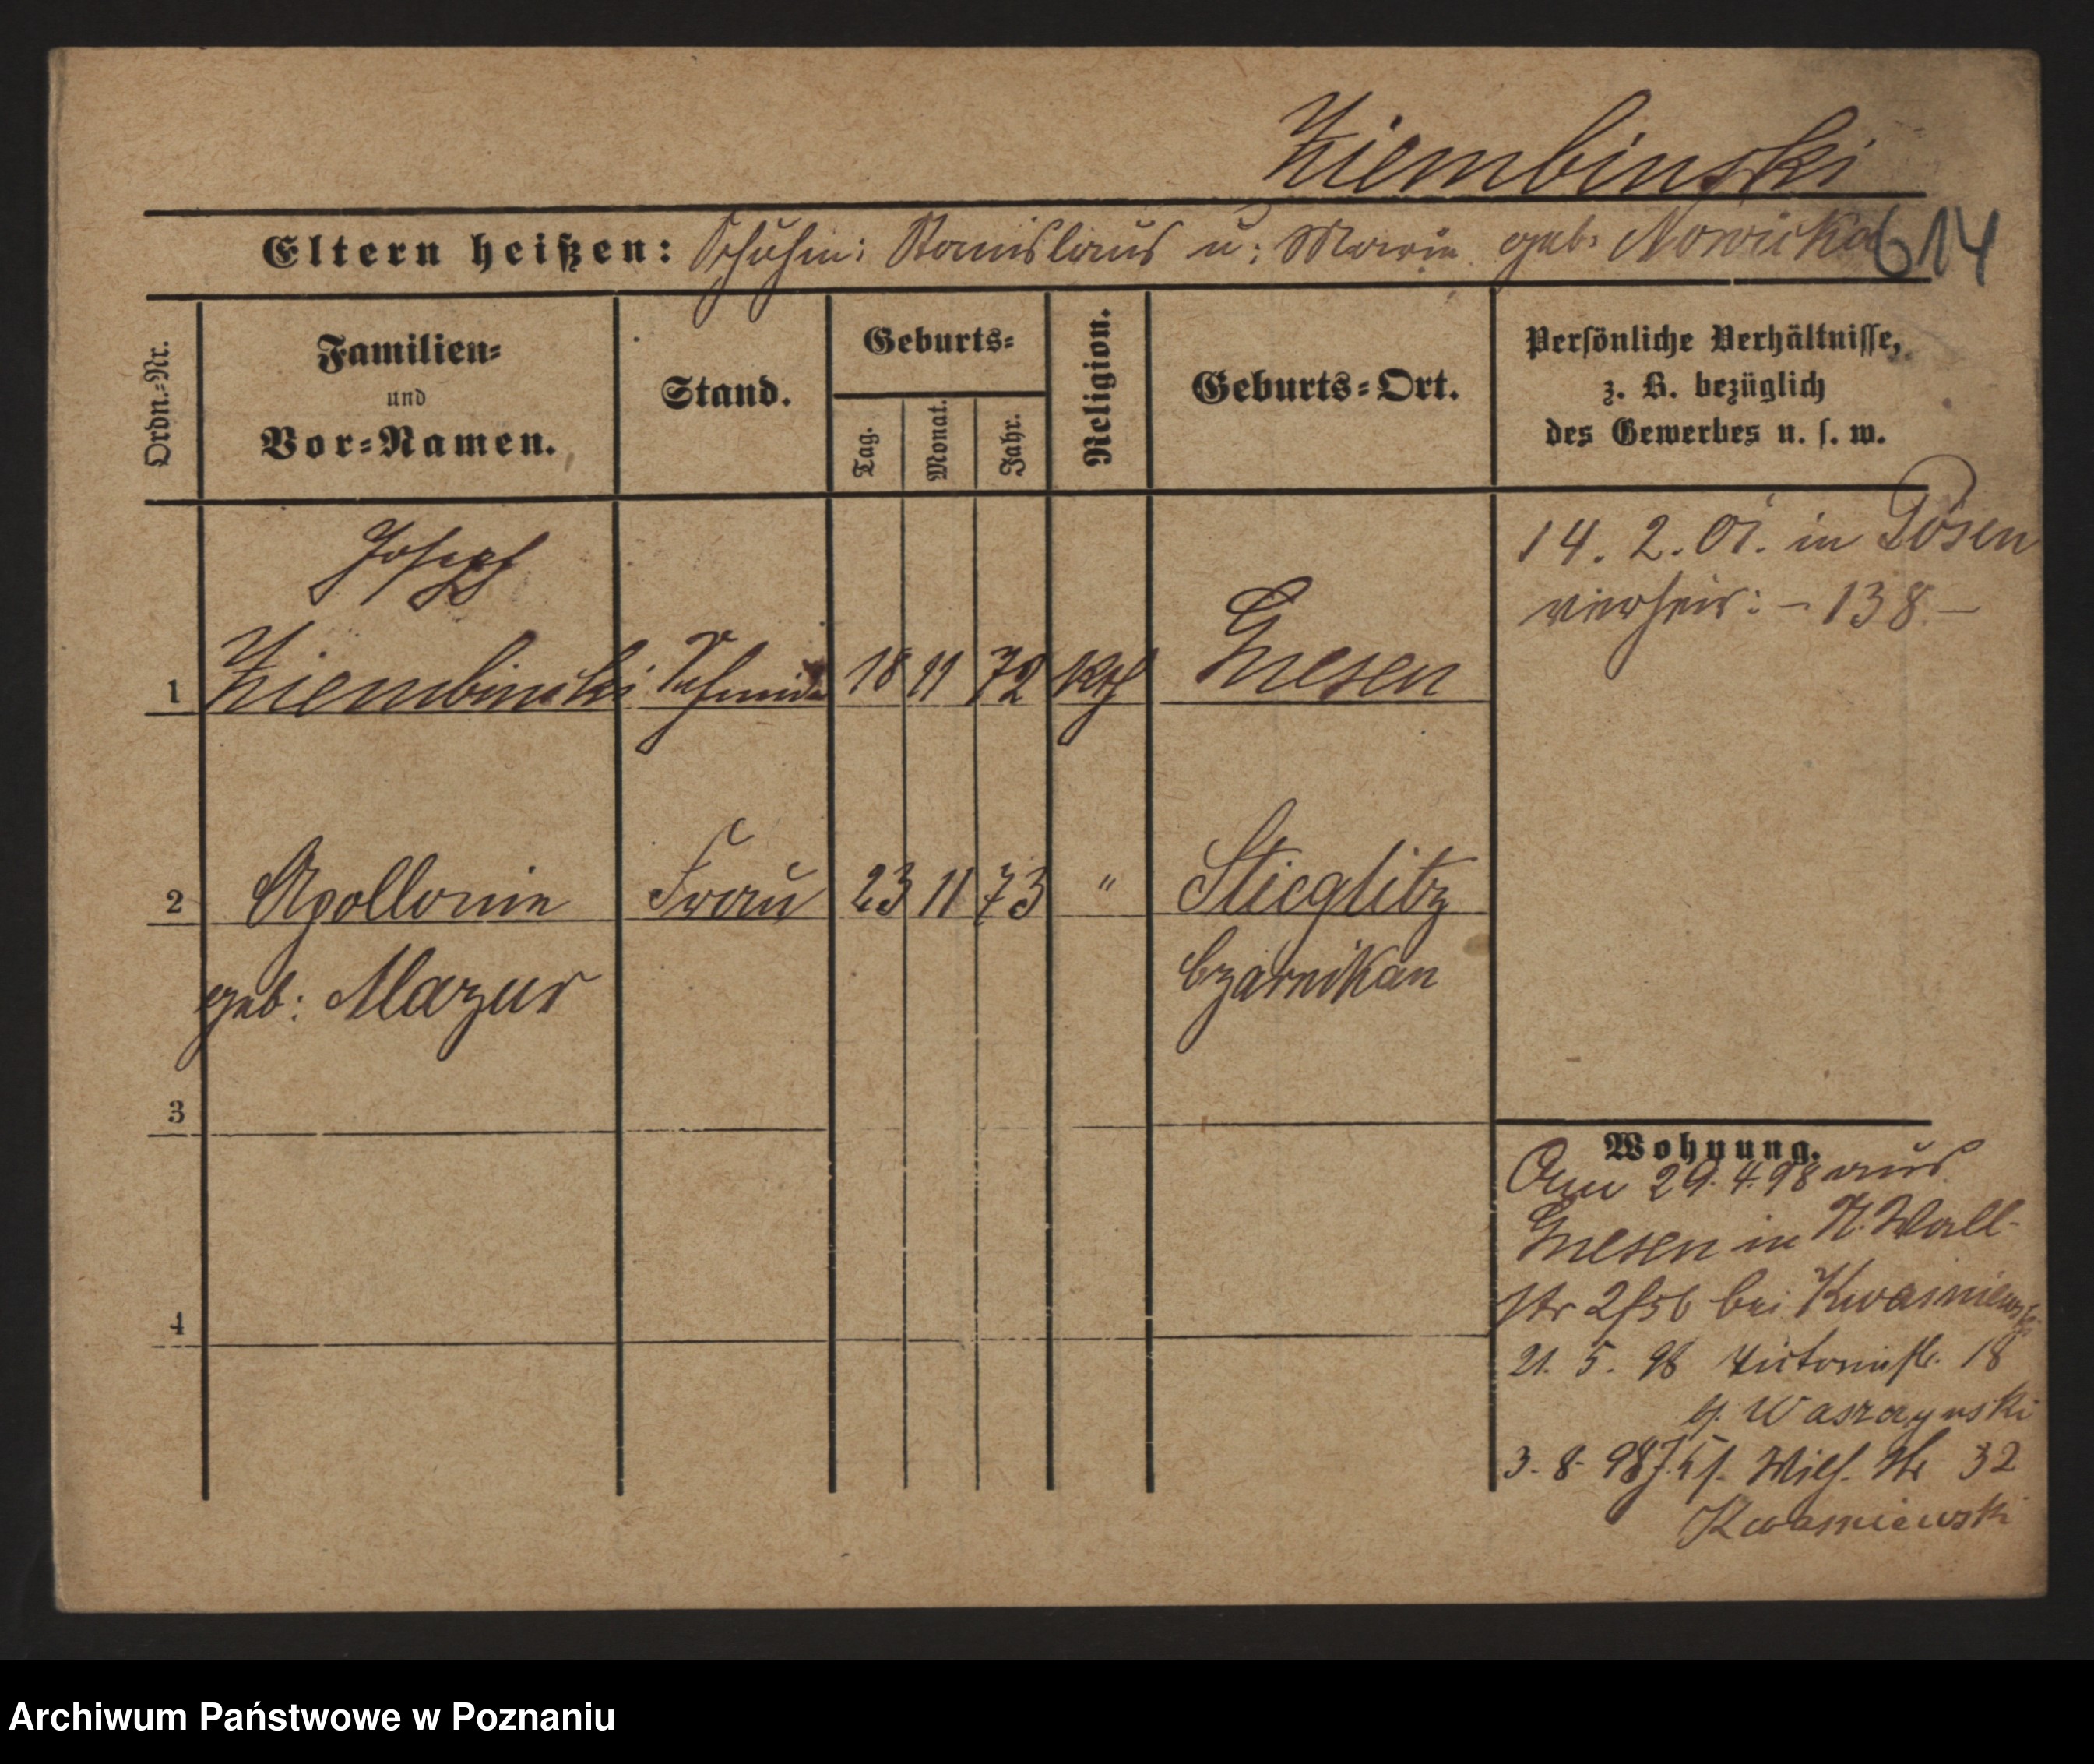 Ziembinski
Eltern heißen: Schuhm: Stanislaus u: Marie geb: Nowicka 614
Ordn.=Nr.
Familien=
und
Vor=Namen.
Stand.
Geburts=
Tag.
Monat.
Jahr.
Religion.
Geburts=Ort.
Persönliche Verhältnisse,
z. B. bezüglich
des Gewerbes u. s. w.
Joseph
1 Ziembinski Schmied 18 11 72 kth Gnesen
14. 2. 01. in Posen
verheir: – 138 –
2 Apollonie Frau 23 11 73 " Stieglitz
geb: Mazur Czarnikau
3
4
Wohnung.
Am 29.4.98 aus
Gnesen in N. Wall-
str 2 bei Kwasniewski
21. 5. 98 Victoriastr. 18
bei Waszaynski
3. 8. 98 Wilh. Str 32
Kwasniewski
Archiwum Państwowe w Poznaniu